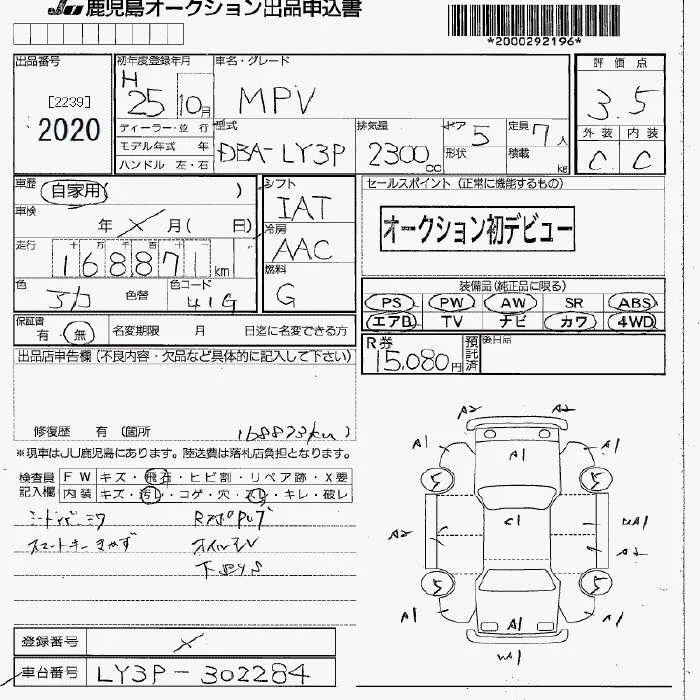 JU 鹿児島オークション出品申込書
*2000292196*
出品番号
[2239]
2020
初年度登録年月
H
25 10月
ディーラー・並 行
モデル年式 年
ハンドル 左・右
車名・グレード
MPV
型式
DBA-LY3P
排気量
2300cc
ドア 5
形状
定員 7人
積載 kg
評価点
3.5
外装 内装
C C
車歴
自家用( )
車検
年 × 月( 日)
走行
十 万 千 百 十
168871km
色
色替
色コード
41G
シフト
IAT
冷房
AAC
燃料
G
セールスポイント (正常に機能するもの)
オークション初デビュー
装備品(純正品に限る)
PS PW AW SR ABS
エアB TV ナビ カワ 4WD
保証書
有 無
名変期限 月 日迄に名変できる方
R券
15,080円
預託済
後日品
出品店申告欄(不良内容・欠品など具体的に記入して下さい)
修復歴 有 (箇所 168873km)
※現車はJU鹿児島にあります。陸送費は落札店負担となります。
検査員
記入欄
FW キズ・飛石・ヒビ割・リペア跡・X要
内装 キズ・汚レ・コゲ・穴・スレ・キレ・破レ
スマートキーキャず
登録番号 ×
車台番号 LY3P-302284
A2 A2
A1 A1 A1
5 5
C1
A2 A2
5 5
A1 A1 A1